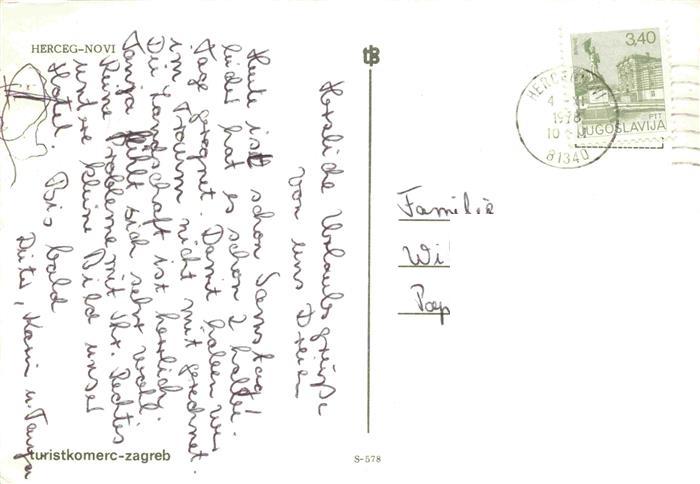 HERCEG-NOVI
Herzliche Urlaubsgrüße
von uns Dreien
Heute ist schon Samstag!
leider hat es schon 2 halbe
Tage geregnet. Damit haben wir
im Traum nicht mit gerechnet.
Die Landschaft ist herrlich.
Tanja fühlt sich sehr wohl.
Keine Probleme mit Ihr. Rechtes
untere kleine Bild unser
Hotel. Bis bald
Dieter, Karin u. Tanja
turistkomerc-zagreb
S-578
tB
3,40
PTT
JUGOSLAVIJA
HERCEG NOVI
4
1978
10
81340
Familie
Wi
Pap